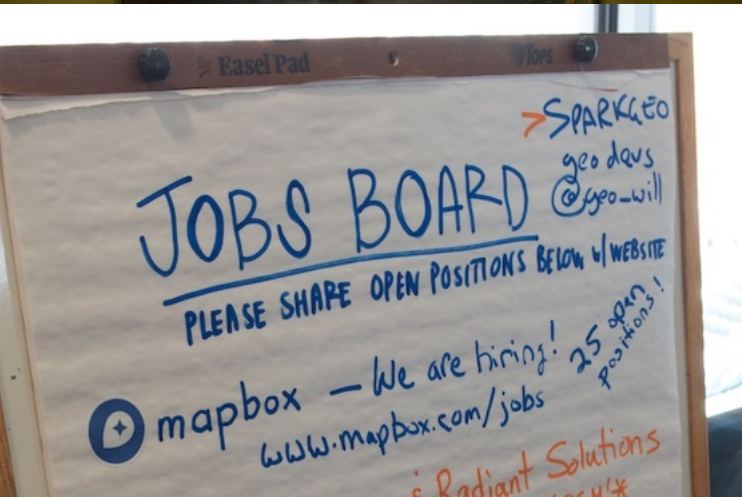 Easel Pad
TOPS
>SPARKGEO
geo devs
@geo_will
JOBS BOARD
PLEASE SHARE OPEN POSITIONS BELOW w/ WEBSITE
mapbox — We are hiring!
25 open
positions!
www.mapbox.com/jobs
Radiant Solutions